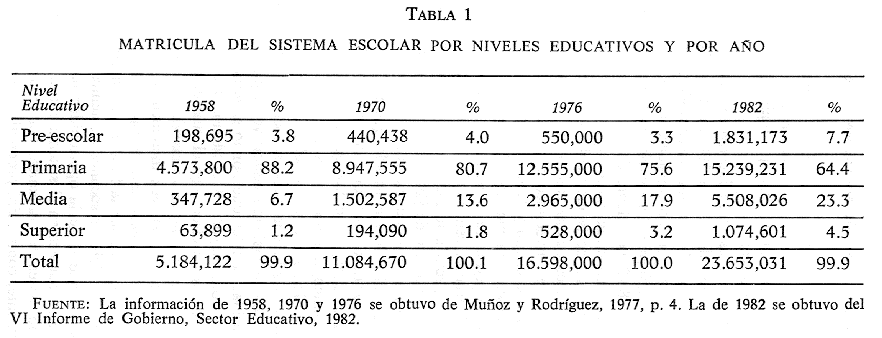 TABLA 1
MATRICULA DEL SISTEMA ESCOLAR POR NIVELES EDUCATIVOS Y POR AÑO
Nivel
Educativo 1958 % 1970 % 1976 % 1982 %
Pre-escolar 198,695 3.8 440,438 4.0 550,000 3.3 1.831,173 7.7
Primaria 4.573,800 88.2 8.947,555 80.7 12.555,000 75.6 15.239,231 64.4
Media 347,728 6.7 1.502,587 13.6 2.965,000 17.9 5.508,026 23.3
Superior 63,899 1.2 194,090 1.8 528,000 3.2 1.074,601 4.5
Total 5.184,122 99.9 11.084,670 100.1 16.598,000 100.0 23.653,031 99.9
FUENTE: La información de 1958, 1970 y 1976 se obtuvo de Muñoz y Rodríguez, 1977, p. 4. La de 1982 se obtuvo del
VI Informe de Gobierno, Sector Educativo, 1982.